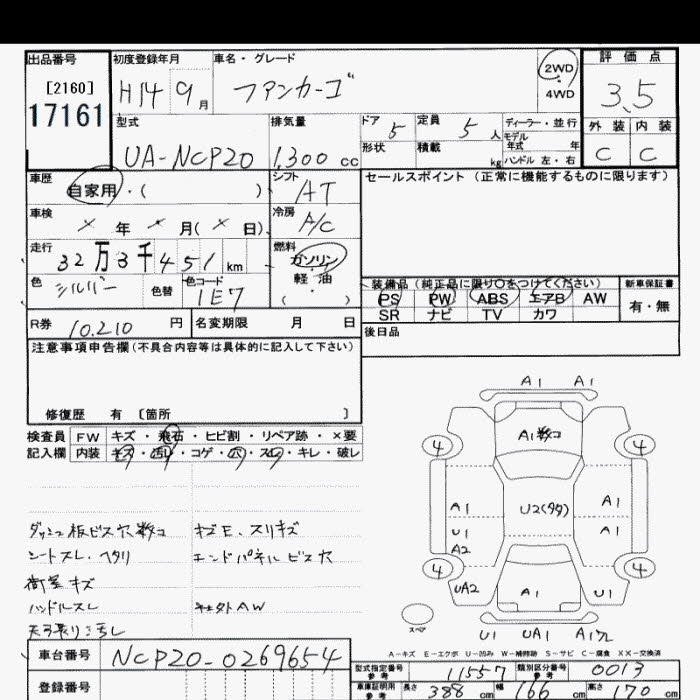 出品番号 初度登録年月 車名・グレード 2WD 評価点
[2160] H14 9月 ファンカーゴ ・ 4WD 3.5
17161 型式 排気量 ドア 5 定員 5人 ディーラー・並行 外装 内装
UA-NCP20 1,300cc 形状 積載 kg モデル年式 年 C C
ハンドル 左・右
車歴 自家用・( ) シフト AT セールスポイント(正常に機能するものに限ります)
車検 × 年 × 月(×日) 冷房 A/C
走行 32万3千451km 燃料 ガソリン・軽油・( )
色 シルバー 色替 色コード 1E7
装備品(純正品に限り○をつけてください) 新車保証書
PS PW ABS エアB AW 有・無
SR ナビ TV カワ
R券 10,210円 名変期限 月 日 後日品
注意事項申告欄(不具合内容等は具体的に記入して下さい)
修復歴 有 〔箇所 〕
検査員 FW キズ・飛石・ヒビ割・リペア跡・×要
記入欄 内装 キズ・汚レ・コゲ・穴・スレ・キレ・破レ
ダッシュ板ビス穴数コ キズE、スリキズ
シートスレ・ヘタリ エンドパネルビス穴
荷室キズ
ハンドルスレ 社外AW
天張り汚レ
A1 A1
A1数コ
4 4
A1 U2(タタ) A1
U1 A1
A2
4 4
UA2 A1 U1
スペア U1 UA1
A-キズ E-エクボ U-凹み W-補修跡 S-サビ C-腐食 XX-交換済
車台番号 NCP20-0269654 型式指定番号参考 11557 類別区分番号 0013
登録番号 車庫証明用参考 長さ 388cm 幅 166cm 高さ 170cm